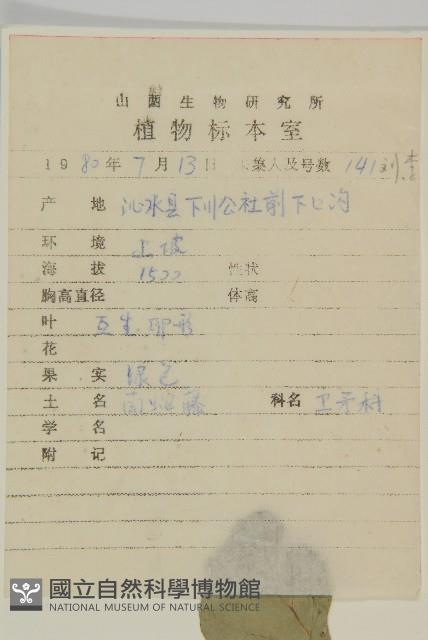 山西生物研究所
植物标本室
1980年7月13日 采集人及号数 141 刘 李
产地 沁水县下川公社前下口沟
环境 山坡
海拔 1500 性状
胸高直径 体高
叶 互生.卵形
花
果实 绿色
土名 南蛇藤 科名 卫矛科
学名
附记
國立自然科學博物館
NATIONAL MUSEUM OF NATURAL SCIENCE